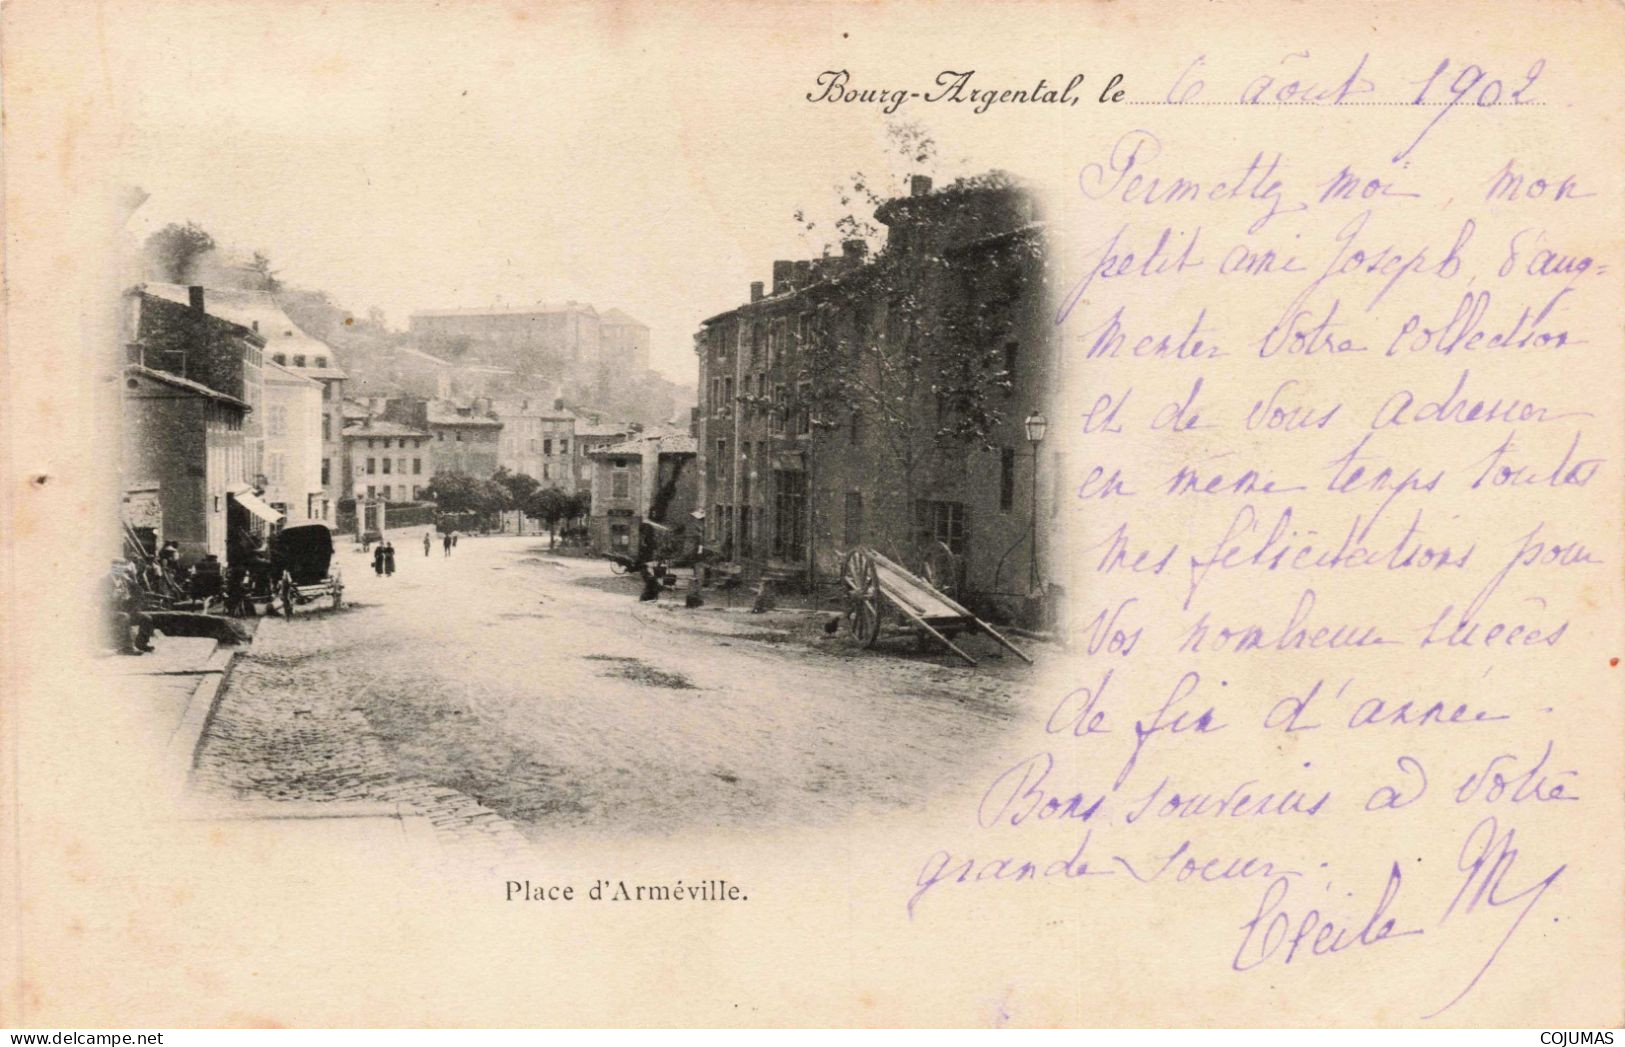 Bourg-Argental, le 6 Août 1902
Permettez moi, mon
petit ami Joseph, d'aug=
menter votre collection
et de vous adresser
en même temps toutes
mes félicitations pour
vos nombreux succès
de fin d'année.
Bons souvenirs à votre
grande soeur.
Cécile M
Place d'Arméville.
COJUMAS